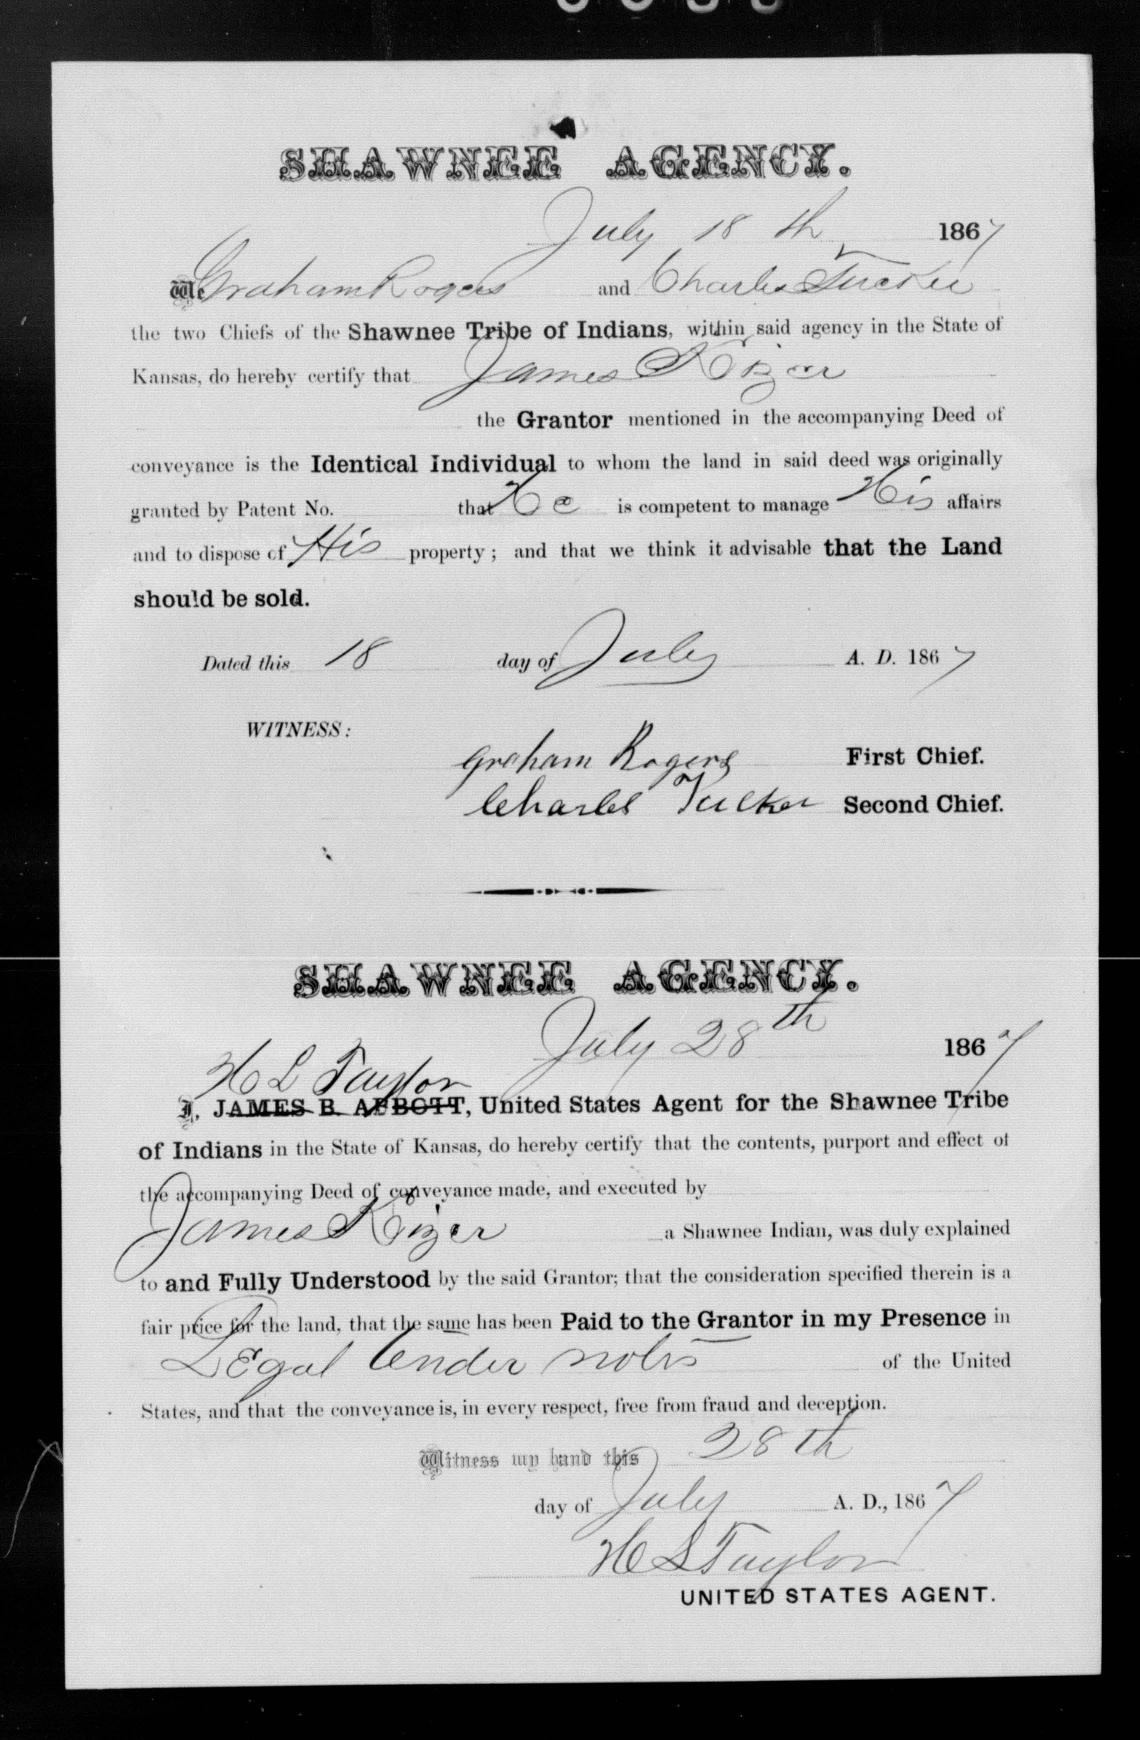 SHAWNEE AGENCY.
July 18th 1867
We Graham Rogers and Charles Tucker
the two Chiefs of the Shawnee Tribe of Indians, within said agency in the State of
Kansas, do hereby certify that James Kizer
the Grantor mentioned in the accompanying Deed of
conveyance is the Identical Individual to whom the land in said deed was originally
granted by Patent No. that He is competent to manage His affairs
and to dispose of His property; and that we think it advisable that the Land
should be sold.
Dated this 18 day of July A. D. 1867
WITNESS:
Graham Rogers First Chief.
Charles Tucker Second Chief.
SHAWNEE AGENCY.
July 28th 1867
H L Taylor
I, JAMES B. ABBOTT, United States Agent for the Shawnee Tribe
of Indians in the State of Kansas, do hereby certify that the contents, purport and effect of
the accompanying Deed of conveyance made, and executed by
James Kizer a Shawnee Indian, was duly explained
to and Fully Understood by the said Grantor; that the consideration specified therein is a
fair price for the land, that the same has been Paid to the Grantor in my Presence in
Legal tender notes of the United
States, and that the conveyance is, in every respect, free from fraud and deception.
Witness my hand this 28th
day of July A. D., 1867
H L Taylor
UNITED STATES AGENT.